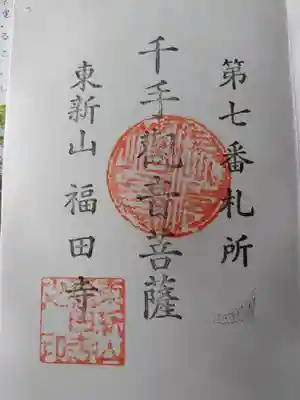 第七番札所
千手觀音菩薩
東新山福田寺